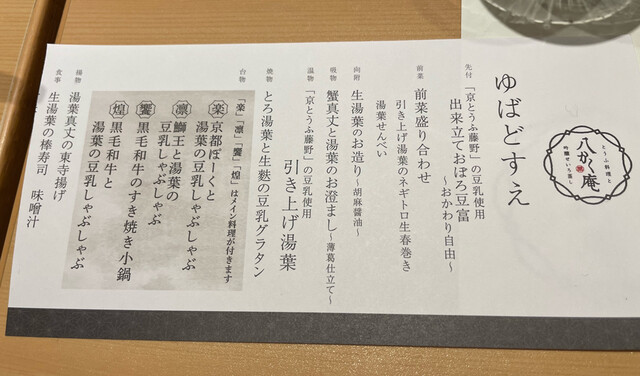 とうふ料理と
吟醸せいろ蒸し
八かく庵
ゆばどすえ
先付
「京とうふ藤野」の豆乳使用
出来立ておぼろ豆富
～おかわり自由～
前菜
前菜盛り合わせ
引き上げ湯葉のネギトロ生春巻き
湯葉せんべい
向附
生湯葉のお造り～胡麻醤油～
吸物
蟹真丈と湯葉のお澄まし～薄葛仕立て～
温物
「京とうふ藤野」の豆乳使用
引き上げ湯葉
焼物
とろ湯葉と生麩の豆乳グラタン
台物
「楽」「凛」「饗」「煌」はメイン料理が付きます
楽 京都ぽーくと
湯葉の豆乳しゃぶしゃぶ
凛 鰤王と湯葉の
豆乳しゃぶしゃぶ
饗 黒毛和牛のすき焼き小鍋
煌 黒毛和牛と
湯葉の豆乳しゃぶしゃぶ
揚物
湯葉真丈の東寺揚げ
食事
生湯葉の棒寿司 味噌汁